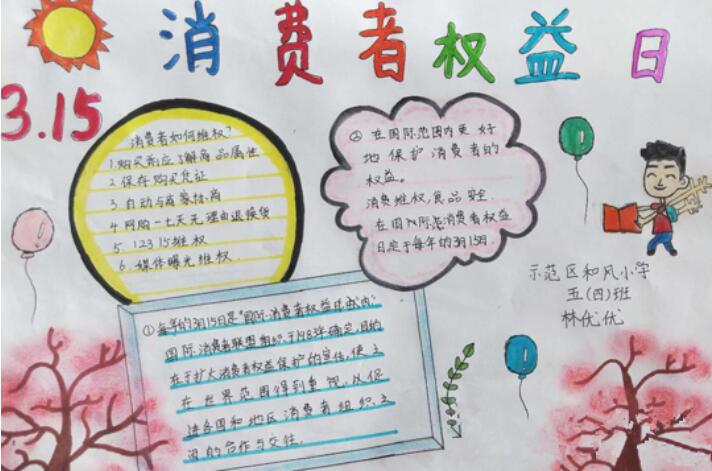 消费者权益日
3.15
消费者如何维权?
1.购买前应了解商品属性
2.保存购买凭证
3.自动与商家协商
4.网购一七天无理由退换货
5.12315维权
6.媒体曝光维权.
② 在国际范围内更好
地保护消费者的
权益。
消费维权,食品安全.
在国际消费者权益
日定于每年的3月15日
示范区和风小学
五(四)班
林优优
①每年的3月15日是"国际消费者权益日
国际消费者联盟组织,于1983年确定,目的
在于扩大消费者权益保护的宣传,使之
在世界范围得到重视,以促
进各国和地区消费者组织之
间的合作与交往.